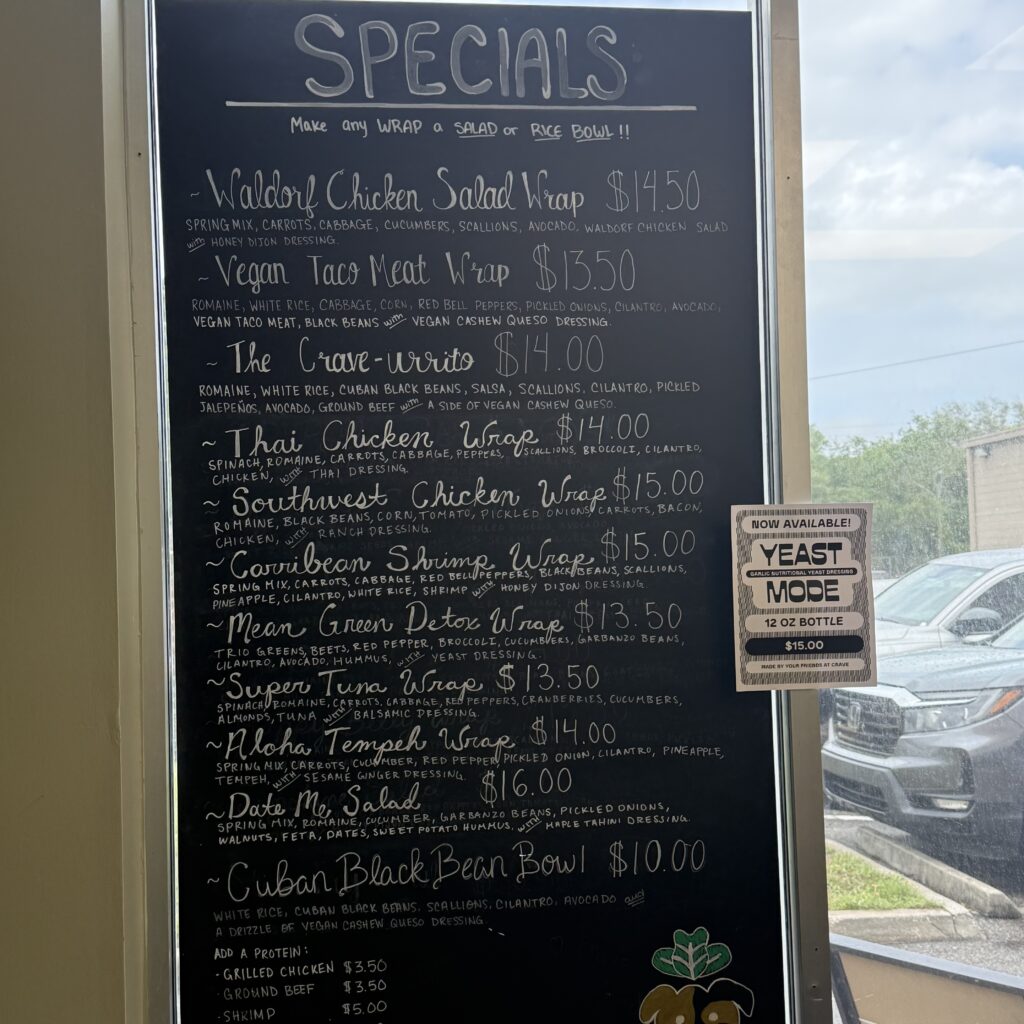 SPECIALS
Make any WRAP a SALAD or RICE BOWL!!
~Waldorf Chicken Salad Wrap $14.50
SPRING MIX, CARROTS, CABBAGE, CUCUMBERS, SCALLIONS, AVOCADO, WALDORF CHICKEN SALAD
with HONEY DIJON DRESSING.
~Vegan Taco Meat Wrap $13.50
ROMAINE, WHITE RICE, CABBAGE, CORN, RED BELL PEPPERS, PICKLED ONIONS, CILANTRO, AVOCADO,
VEGAN TACO MEAT, BLACK BEANS with VEGAN CASHEW QUESO DRESSING.
~The Crave-urrito $14.00
ROMAINE, WHITE RICE, CUBAN BLACK BEANS, SALSA, SCALLIONS, CILANTRO, PICKLED
JALEPEÑOS, AVOCADO, GROUND BEEF with A SIDE OF VEGAN CASHEW QUESO.
~Thai Chicken Wrap $14.00
SPINACH, ROMAINE, CARROTS, CABBAGE, PEPPERS, SCALLIONS, BROCCOLI, CILANTRO,
CHICKEN, with THAI DRESSING.
~Southwest Chicken Wrap $15.00
ROMAINE, BLACK BEANS, CORN, TOMATO, PICKLED ONIONS, CARROTS, BACON,
CHICKEN, with RANCH DRESSING.
~Carribean Shrimp Wrap $15.00
SPRING MIX, CARROTS, CABBAGE, RED BELL PEPPERS, BLACK BEANS, SCALLIONS,
PINEAPPLE, CILANTRO, WHITE RICE, SHRIMP with HONEY DIJON DRESSING.
~Mean Green Detox Wrap $13.50
TRIO GREENS, BEETS, RED PEPPER, BROCCOLI, CUCUMBERS, GARBANZO BEANS,
CILANTRO, AVOCADO, HUMMUS, with YEAST DRESSING.
~Super Tuna Wrap $13.50
SPINACH, ROMAINE, CARROTS, CABBAGE, RED PEPPERS, CRANBERRIES, CUCUMBERS,
ALMONDS, TUNA with BALSAMIC DRESSING.
~Aloha Tempeh Wrap $14.00
SPRING MIX, CARROTS, CUCUMBER, RED PEPPER, PICKLED ONION, CILANTRO, PINEAPPLE,
TEMPEH, with SESAME GINGER DRESSING.
~Date Me Salad $16.00
SPRING MIX, ROMAINE, CUCUMBER, GARBANZO BEANS, PICKLED ONIONS,
WALNUTS, FETA, DATES, SWEET POTATO HUMMUS, with MAPLE TAHINI DRESSING.
~Cuban Black Bean Bowl $10.00
WHITE RICE, CUBAN BLACK BEANS, SCALLIONS, CILANTRO, AVOCADO and
A DRIZZLE OF VEGAN CASHEW QUESO DRESSING.
ADD A PROTEIN:
·GRILLED CHICKEN $3.50
·GROUND BEEF $3.50
·SHRIMP $5.00
NOW AVAILABLE!
YEAST
GARLIC NUTRITIONAL YEAST DRESSING
MODE
12 OZ BOTTLE
$15.00
MADE BY YOUR FRIENDS AT CRAVE